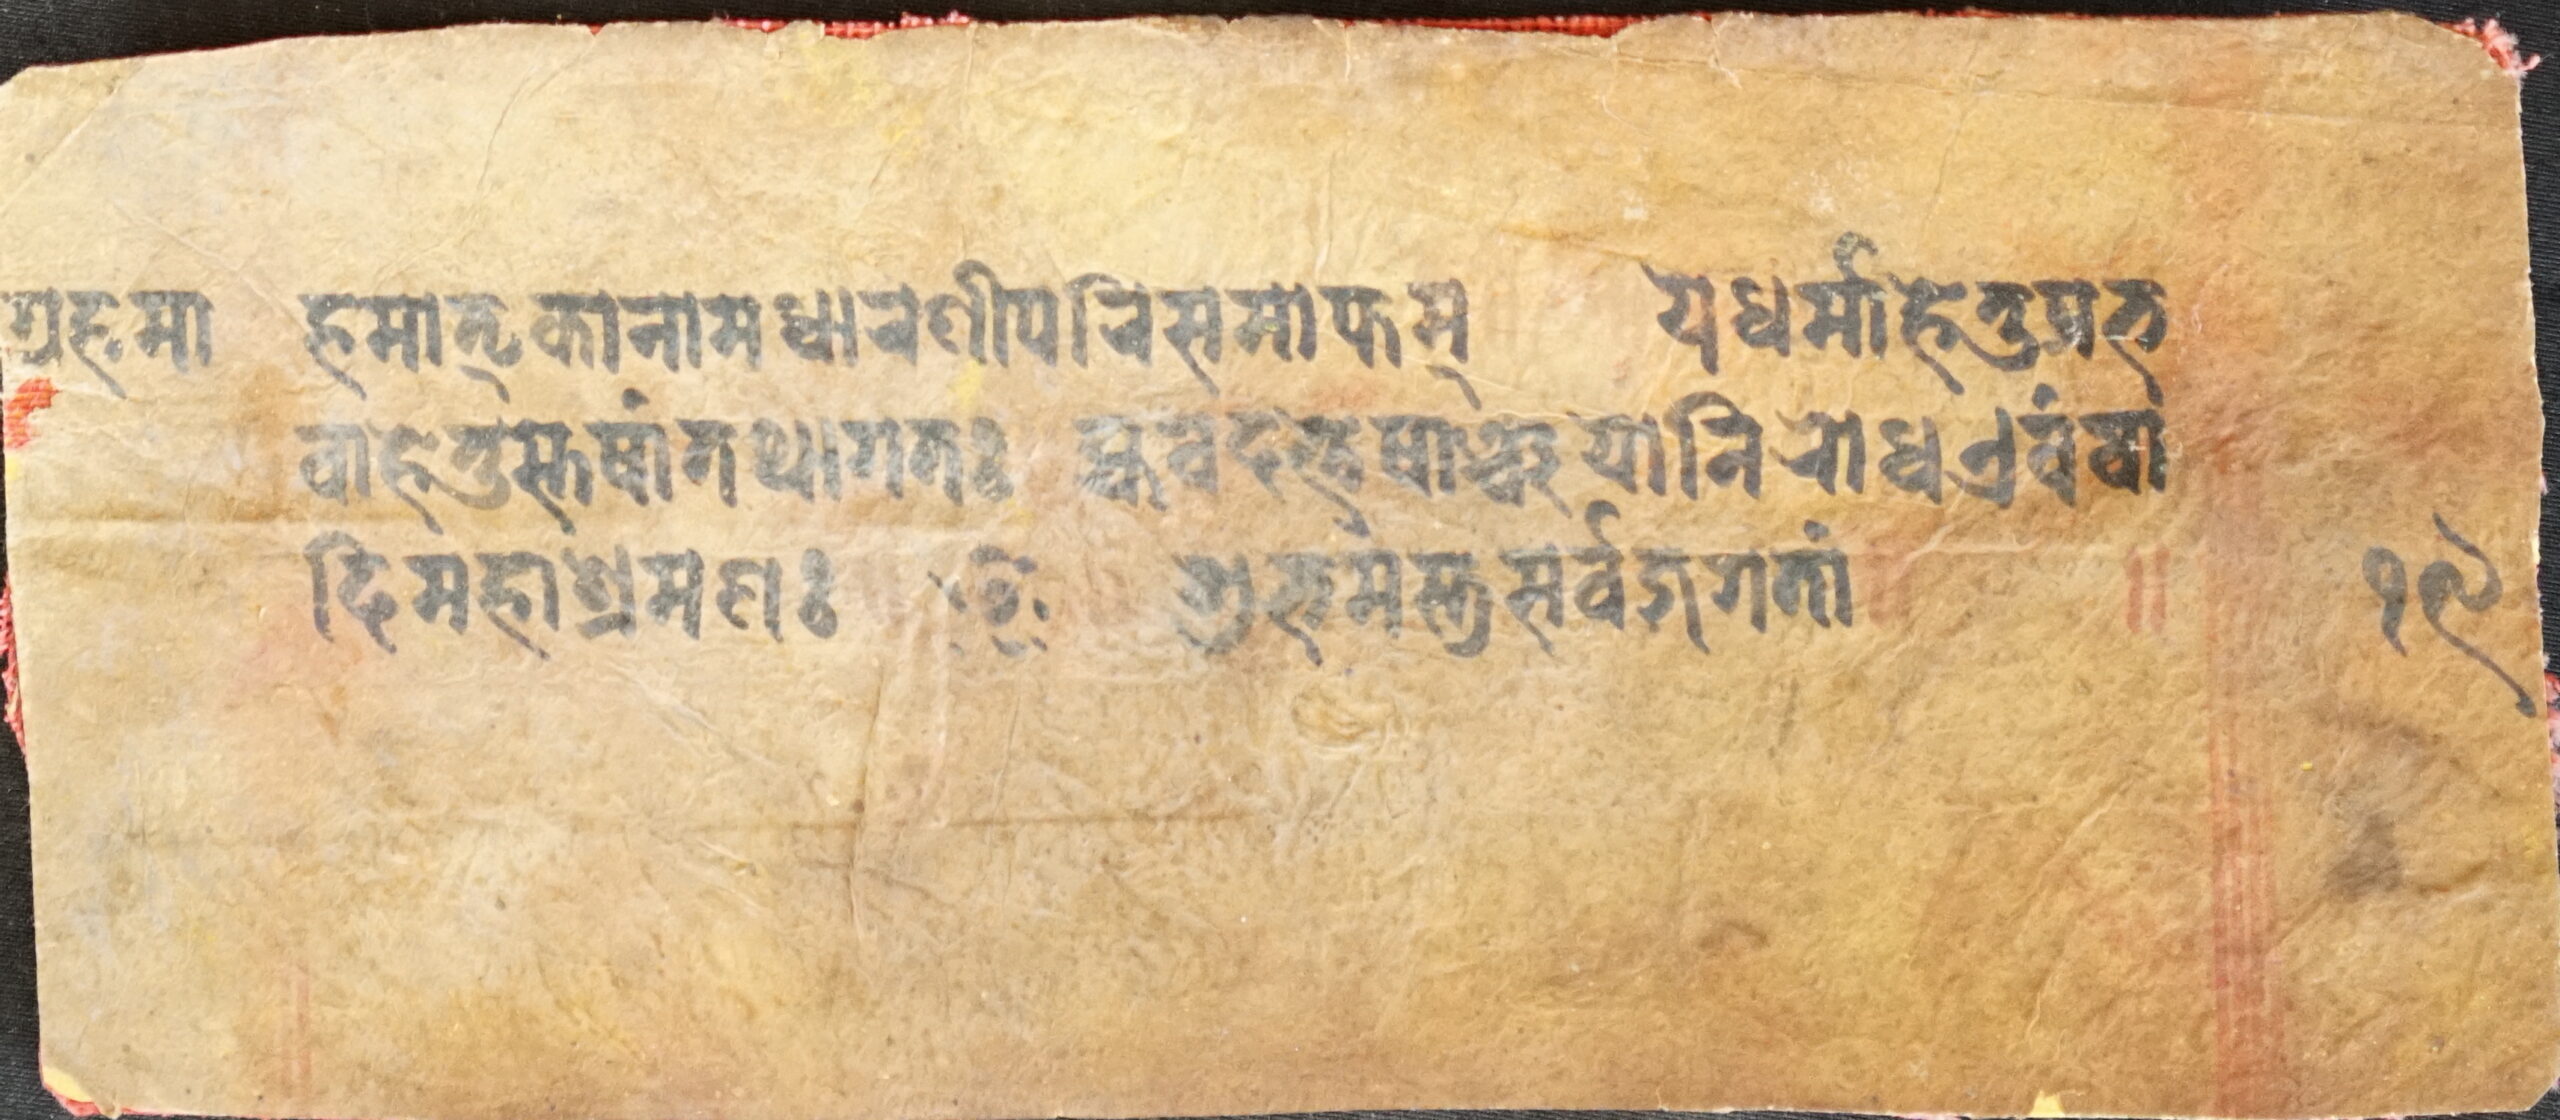 ग्रहमा हमातृकानामधारणीपरिसमाप्तम् येधर्माहेतुप्रभ १९
वाहेतुस्तेषांतथागतः ह्येवदत्तेषाञ्चयोनिरोधएवंवा
दिमहाश्रमणः शुभमस्तुसर्वजगतां ॥ ॥